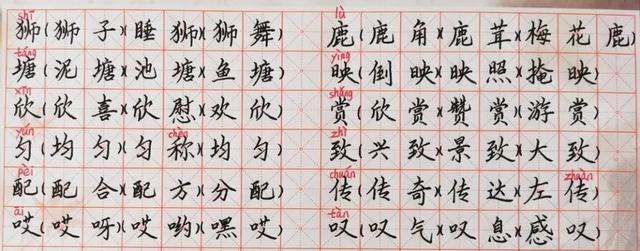 shī lù
狮(狮子)(睡狮)(狮舞) 鹿(鹿角)(鹿茸)(梅花鹿)
táng yìng
塘(泥塘)(池塘)(鱼塘) 映(倒映)(映照)(掩映)
xīn shǎng
欣(欣喜)(欣慰)(欢欣) 赏(欣赏)(赞赏)(游赏)
yún chèn zhì
匀(均匀)(匀称)(均匀) 致(兴致)(景致)(大致)
pèi chuán zhuàn
配(配合)(配方)(分配) 传(传奇)(传达)(左传)
āi tàn
哎(哎呀)(哎哟)(嘿哎) 叹(叹气)(叹息)(感叹)